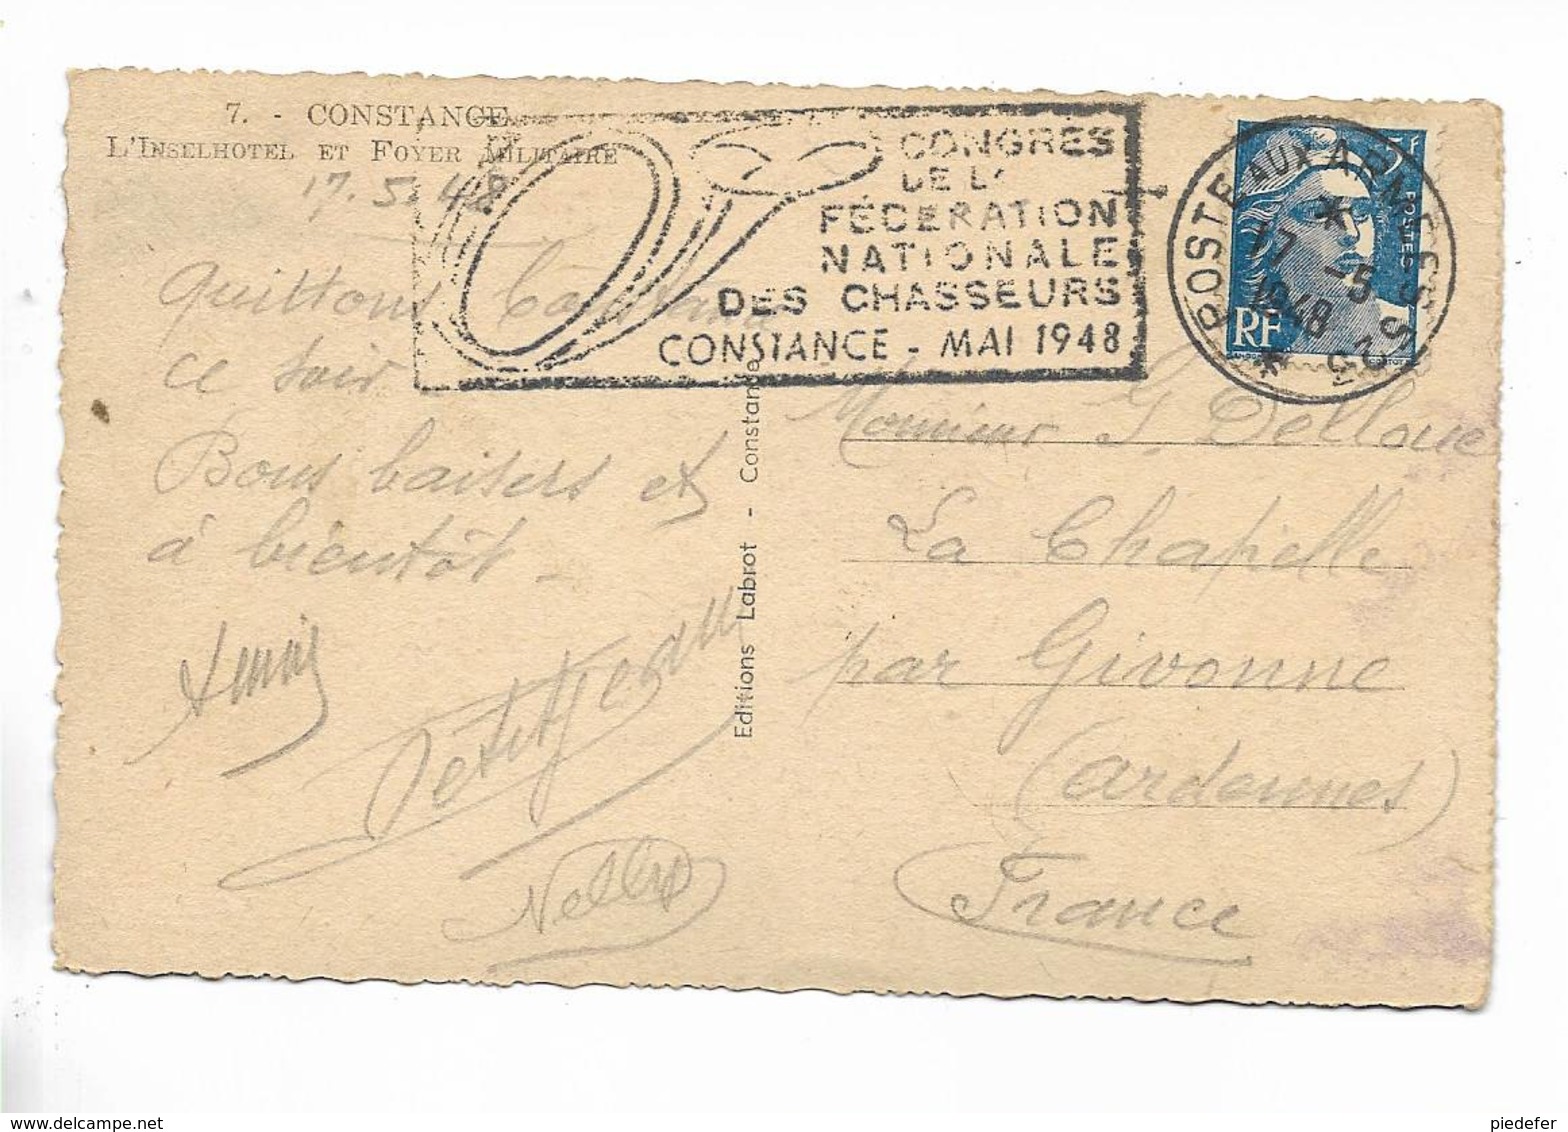 7. - CONSTANCE
L'INSELHOTEL ET FOYER MILITAIRE
17.5.48
CONGRES
DE LA
FÉDERATION
NATIONALE
DES CHASSEURS
CONSTANCE - MAI 1948
POSTE AUX ARMEES
17 -5
1948
POSTES
RF
quittons
ce soir
Bons baisers et
à bientôt -
Editions Labrot - Constance
Monsieur G. Delloue
La Chapelle
par Givonne
(Ardennes)
France
delcampe.net
piedefer